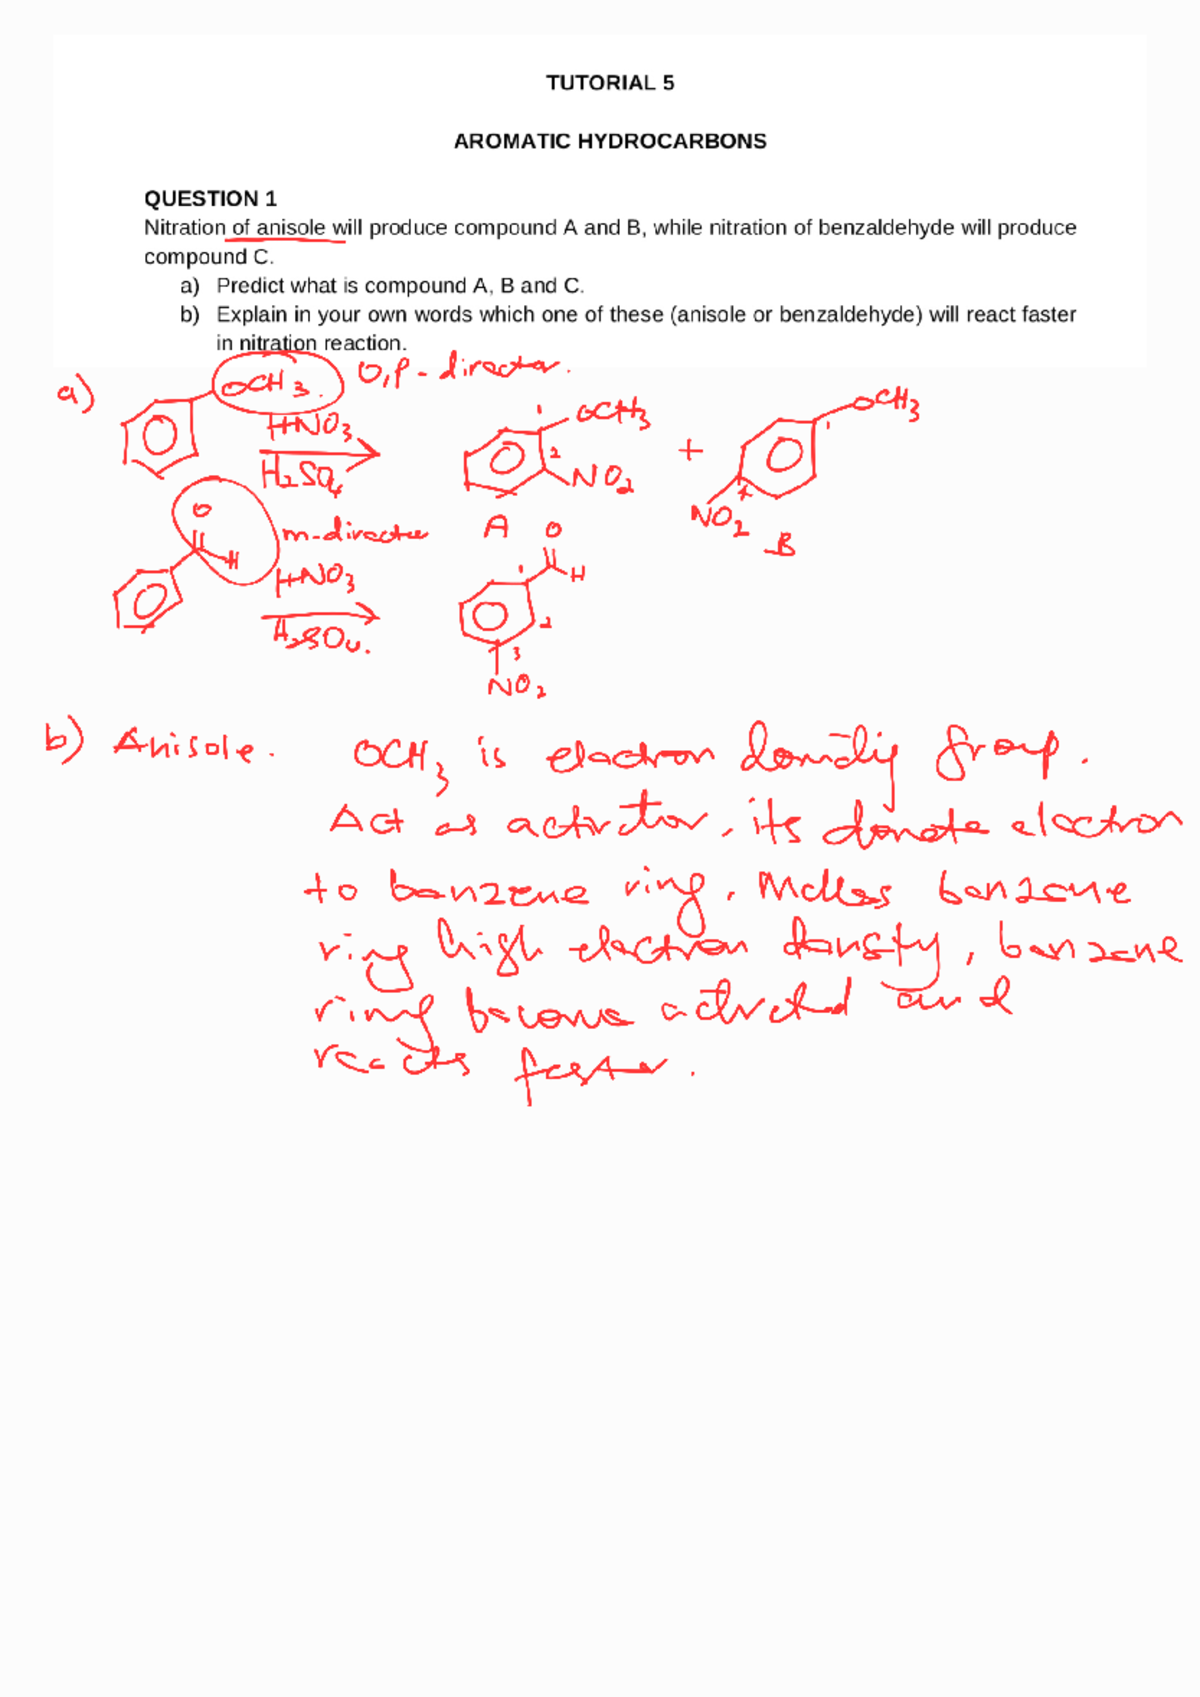 TUTORIAL 5
AROMATIC HYDROCARBONS
QUESTION 1
Nitration of anisole will produce compound A and B, while nitration of benzaldehyde will produce
compound C.
a) Predict what is compound A, B and C.
b) Explain in your own words which one of these (anisole or benzaldehyde) will react faster
in nitration reaction.
a) OCH3. O,P-director.
HNO3
H2SO4
1 OCH3
2 NO2
A
+
OCH3
1
4
NO2
B
O
H
m-director
HNO3
H2SO4.
O
H
1
2
3
NO2
b) Anisole. OCH3 is electron donating group.
Act as activator, its donate electron
to benzene ring. Makes benzene
ring high electron density, benzene
ring become activated and
reacts faster.